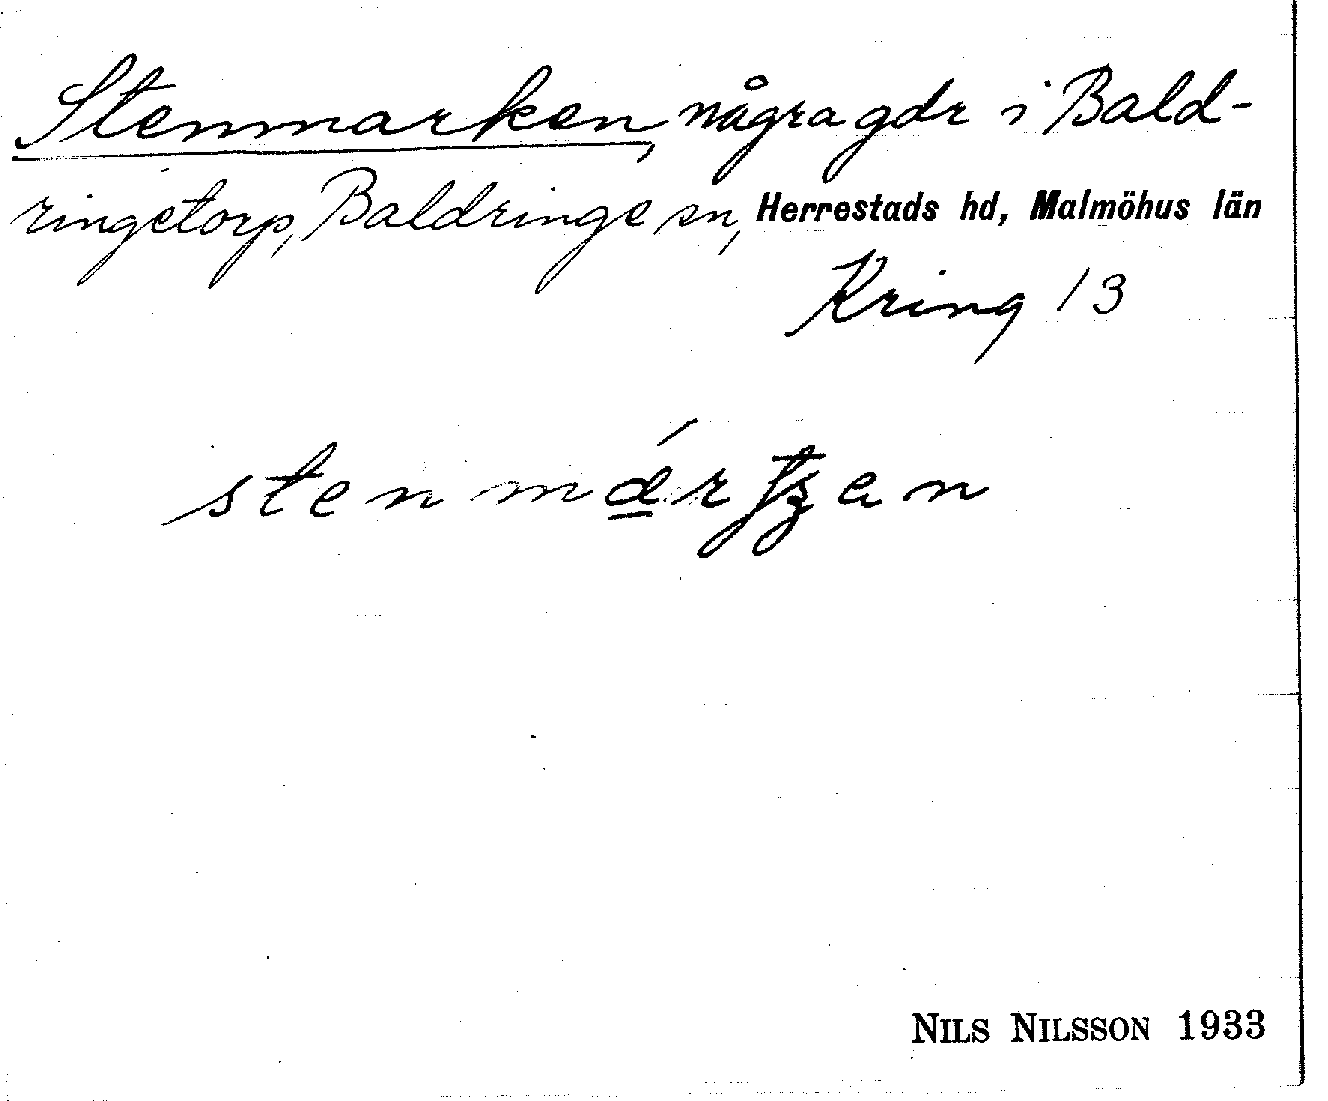 Stenmarken, några gdr i Bald-
ringetorp, Baldringe sn, Herrestads hd, Malmöhus län
Kring 13
NILS NILSSON 1933